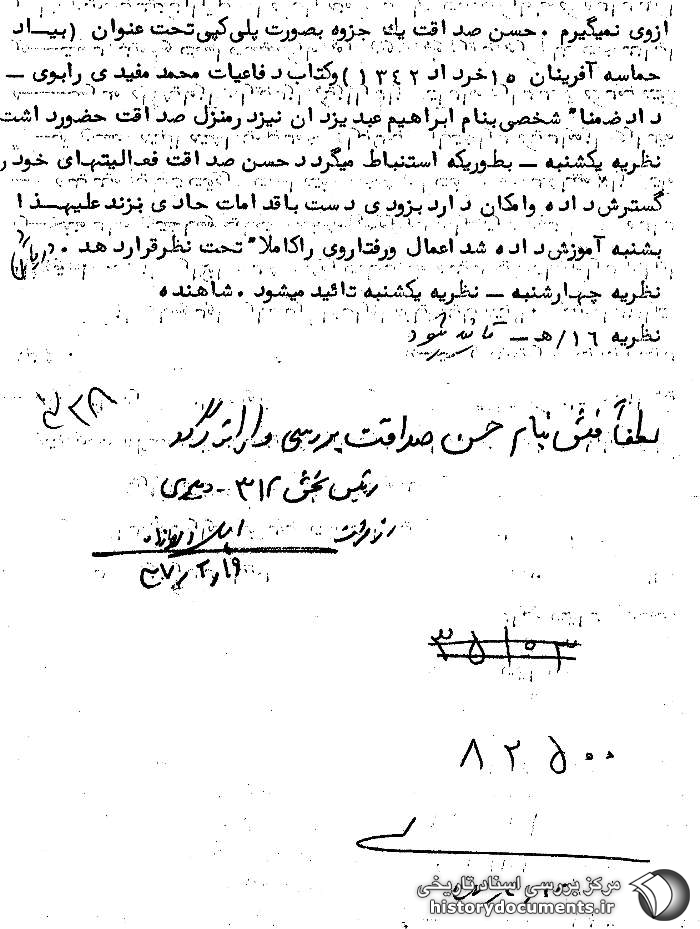 ازوی نمیگیرم . حسن صداقت یك جزوه بصورت پلی کپی تحت عنوان (بیـاد
حماسه آفرینان ۱۵ خرداد ۱۳۴۲) وکتاب دفاعیات محمد مفیدی رابوی –
داد ضمناً شخصی بنام ابراهیم عبد یزدان نیزد رمنزل صداقت حضورداشت
نظریه یکشنبه – بطوریکه استنباط میگردد حسن صداقت فعالیتهای خود ر
گسترش داده وامکان دارد بزودی دست باقدامات حادی بزند علیهـذا
بشنبه آموزش داده شد اعمال ورفتاروی راکاملاً تحت نظرقراردهد .
نظریه چهارشنبه – نظریه یکشنبه تائید میشود . شاهنده
نظریه ۱۶/هـ –
لطفاً فیش بنام حسن صداقت بررسی و
رئیس بخش ۳۱۲ -
۳۵۱۰۳
۸۲۵۰۰
مرکز بررسی اسناد تاریخی
historydocuments.ir